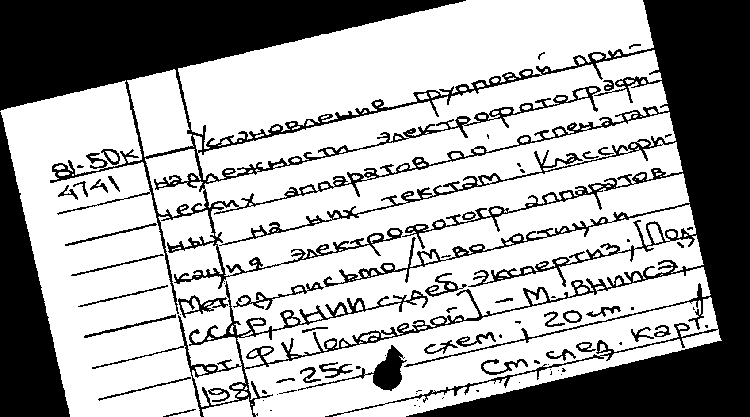 81-50к
4741
Установление групповой при-
надлежности электрофотографи-
ческих аппаратов по отпечатан-
ных на них текстам : Классифи-
кация электрофотогр. аппаратов
Метод. письмо / М-во юстиции
СССР, ВНИИ судеб. экспертиз ; [Под-
гот. Ф.К. Толкачевой]. - М. : ВНИИСЭ,
1981. - 25с. схем. ; 20 см.
См. след. карт.